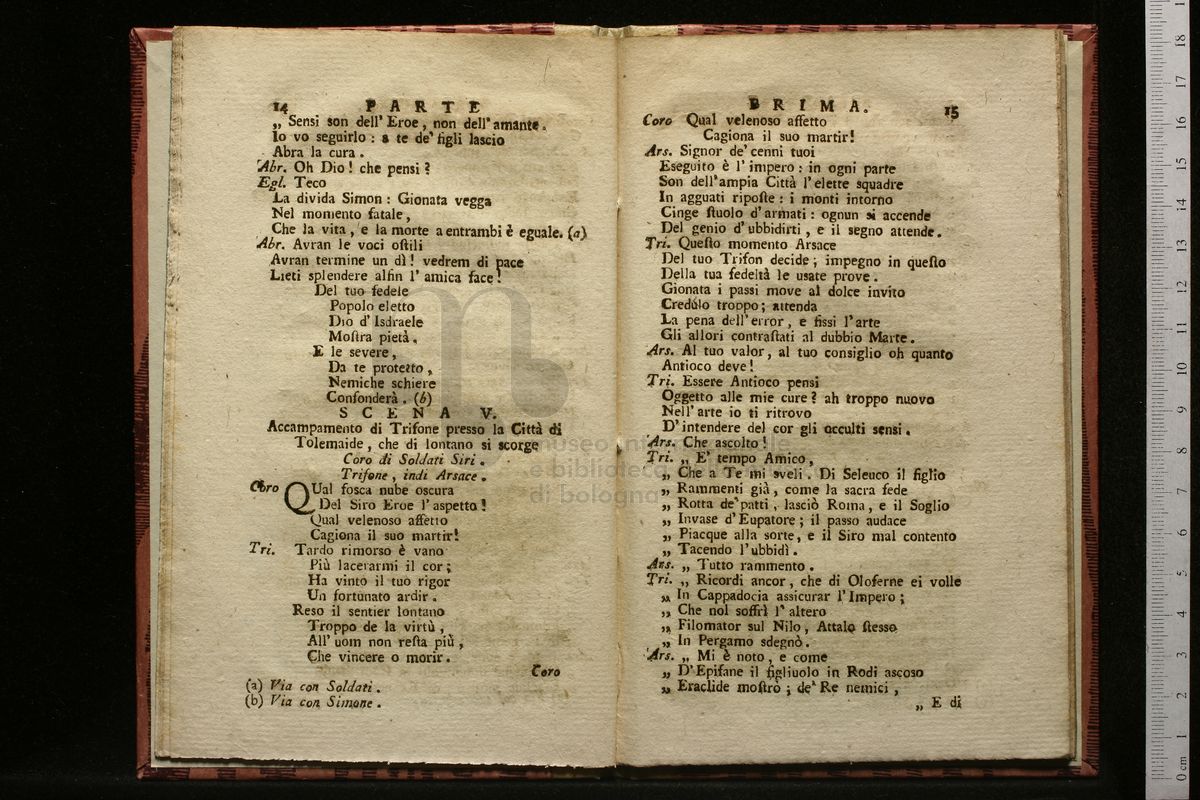 14 PARTE
„ Sensi son dell' Eroe, non dell' amante.
Io vo seguirlo : a te de' figli lascio
Abra la cura.
Abr. Oh Dio! che pensi?
Egl. Teco
La divida Simon : Gionata vegga
Nel momento fatale,
Che la vita, e la morte a entrambi è eguale. (a)
Abr. Avran le voci oſtili
Avran termine un dì! vedrem di pace
Lieti splendere alfin l' amica face!
Del tuo fedele
Popolo eletto
Dio d' Isdraele
Moſtra pietà.
E le severe,
Da te protetto,
Nemiche schiere
Confonderà. (b)
SCENA V.
Accampamento di Trifone presso la Città di
Tolemaide, che di lontano si scorge
Coro di Soldati Siri.
Trifone, indi Arsace.
Coro QUal fosca nube oscura
Del Siro Eroe l'aspetto!
Qual velenoso affetto
Cagiona il suo martir!
Tri. Tardo rimorso è vano
Più lacerarmi il cor;
Ha vinto il tuo rigor
Un fortunato ardir.
Reso il sentier lontano
Troppo de la virtù,
All' uom non reſta più,
Che vincere o morir.
Coro
(a) Via con Soldati.
(b) Via con Simone.
PRIMA. 15
Coro Qual velenoso affetto
Cagiona il suo martir!
Ars. Signor de' cenni tuoi
Eseguito è l' impero : in ogni parte
Son dell'ampia Città l'elette squadre
In agguati ripoſte : i monti intorno
Cinge ſtuolo d'armati : ognun si accende
Del genio d'ubbidirti, e il segno attende.
Tri. Queſto momento Arsace
Del tuo Trifon decide; impegno in queſto
Della tua fedeltà le usate prove.
Gionata i passi move al dolce invito
Credúlo troppo; attenda
La pena dell'error, e fissi l'arte
Gli allori contraſtati al dubbio Marte.
Ars. Al tuo valor, al tuo consiglio oh quanto
Antioco deve!
Tri. Essere Antioco pensi
Oggetto alle mie cure? ah troppo nuovo
Nell' arte io ti ritrovo
D' intendere del cor gli occulti sensi.
Ars. Che ascolto!
Tri. „ E' tempo Amico,
„ Che a Te mi sveli. Di Seleuco il figlio
„ Rammenti già, come la sacra fede
„ Rotta de' patti, lasciò Roma, e il Soglio
„ Invase d'Eupatore; il passo audace
„ Piacque alla sorte, e il Siro mal contento
„ Tacendo l'ubbidì.
Ars. „ Tutto rammento.
Tri. „ Ricordi ancor, che di Oloferne ei volle
„ In Cappadocia assicurar l'Impero;
„ Che nol soffrì l' altero
„ Filomator sul Nilo, Attalo ſtesso
„ In Pergamo sdegnò.
Ars. „ Mi è noto, e come
„ D'Epifane il figliuolo in Rodi ascoso
„ Eraclide moſtrò; de' Re nemici,
„ E di
museo internazionale
e biblioteca
di bologna
0 cm 1 2 3 4 5 6 7 8 9 10 11 12 13 14 15 16 17 18